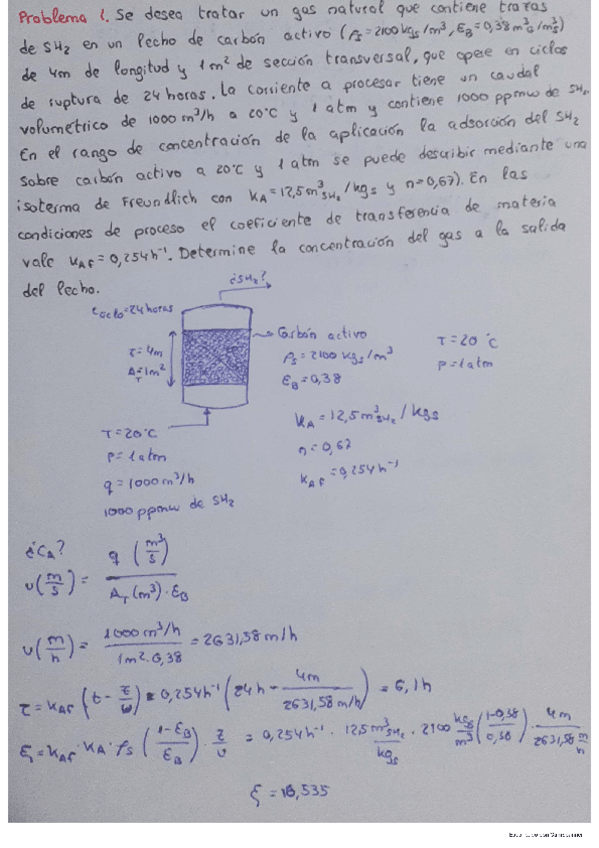 Problema 1. Se desea tratar un gas natural que contiene trazas
de SH₂ en un lecho de carbón activo (ρs=2100 kgs/m³, ε_B=0,38 m³G/m³s)
de 4m de longitud y 1m² de sección transversal, que opere en ciclos
de ruptura de 24 horas. La corriente a procesar tiene un caudal
volumétrico de 1000 m³/h a 20°C y 1 atm y contiene 1000 ppmw de SH₂.
En el rango de concentración de la aplicación la adsorción del SH₂
sobre carbón activo a 20°C y 1 atm se puede describir mediante una
isoterma de Freundlich con K_A=12,5 m³SH₂/kgs y n=0,67). En las
condiciones de proceso el coeficiente de transferencia de materia
vale K_AF=0,254 h⁻¹. Determine la concentración del gas a la salida
del lecho.
¿SH₂?
t ciclo=24 horas
Carbón activo
z=4m
A_T=1m²
ρs=2100 kgs/m³
ε_B=0,38
T=20 °C
P=1 atm
K_A=12,5 m³SH₂/kgs
n=0,67
K_AF=0,254 h⁻¹
T=20°C
P=1 atm
q=1000 m³/h
1000 ppmw de SH₂
¿C_A?
u(m/s) = q (m³/s) / A_T (m³)·ε_B
u(m/h) = 1000 m³/h / 1m²·0,38 = 2631,58 m/h
τ = K_AF (t - z/u) = 0,254 h⁻¹ (24h - 4m / 2631,58 m/h) = 6,1 h
ξ = K_AF·K_A·ρs (1-ε_B / ε_B)·z/u = 0,254 h⁻¹ · 12,5 m³SH₂/kgs · 2100 kgs/m³ (1-0,38 / 0,38) · 4m / 2631,58 m/h
ξ = 16,535